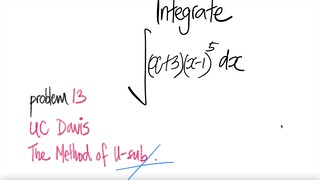 Integrate
∫(x+3)(x-1)⁵ dx
problem 13
UC Davis
The Method of U-sub.